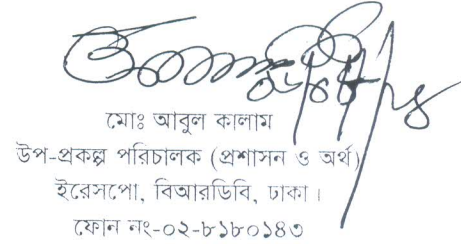 মোঃ আবুল কালাম
উপ-প্রকল্প পরিচালক (প্রশাসন ও অর্থ)
ইরেসপো, বিআরডিবি, ঢাকা।
ফোন নং-০২-৮১৮০১৪৩